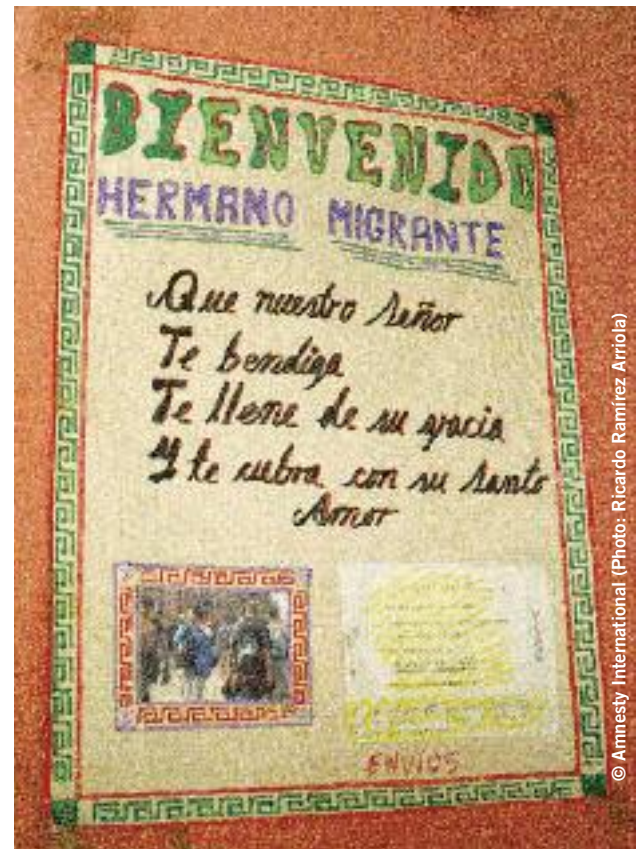 BIENVENIDO
HERMANO MIGRANTE
Que nuestro señor
Te bendiga
Te llene de su gracia
Y te cubra con su santo
Amor
ENVIOS
© Amnesty International (Photo: Ricardo Ramírez Arriola)